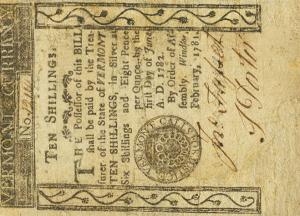 VERMONT CURRENCY.
No.
TEN SHILLINGS.
THE Possessor of this BILL
shall be paid by the Trea-
surer of the State of VERMONT
TEN SHILLINGS, Silver, at
Six Shillings and Eight Pence
per Ounce, by the
first Day of June,
A. D. 1782.
By Order of As-
sembly, Windsor,
February, 1781.